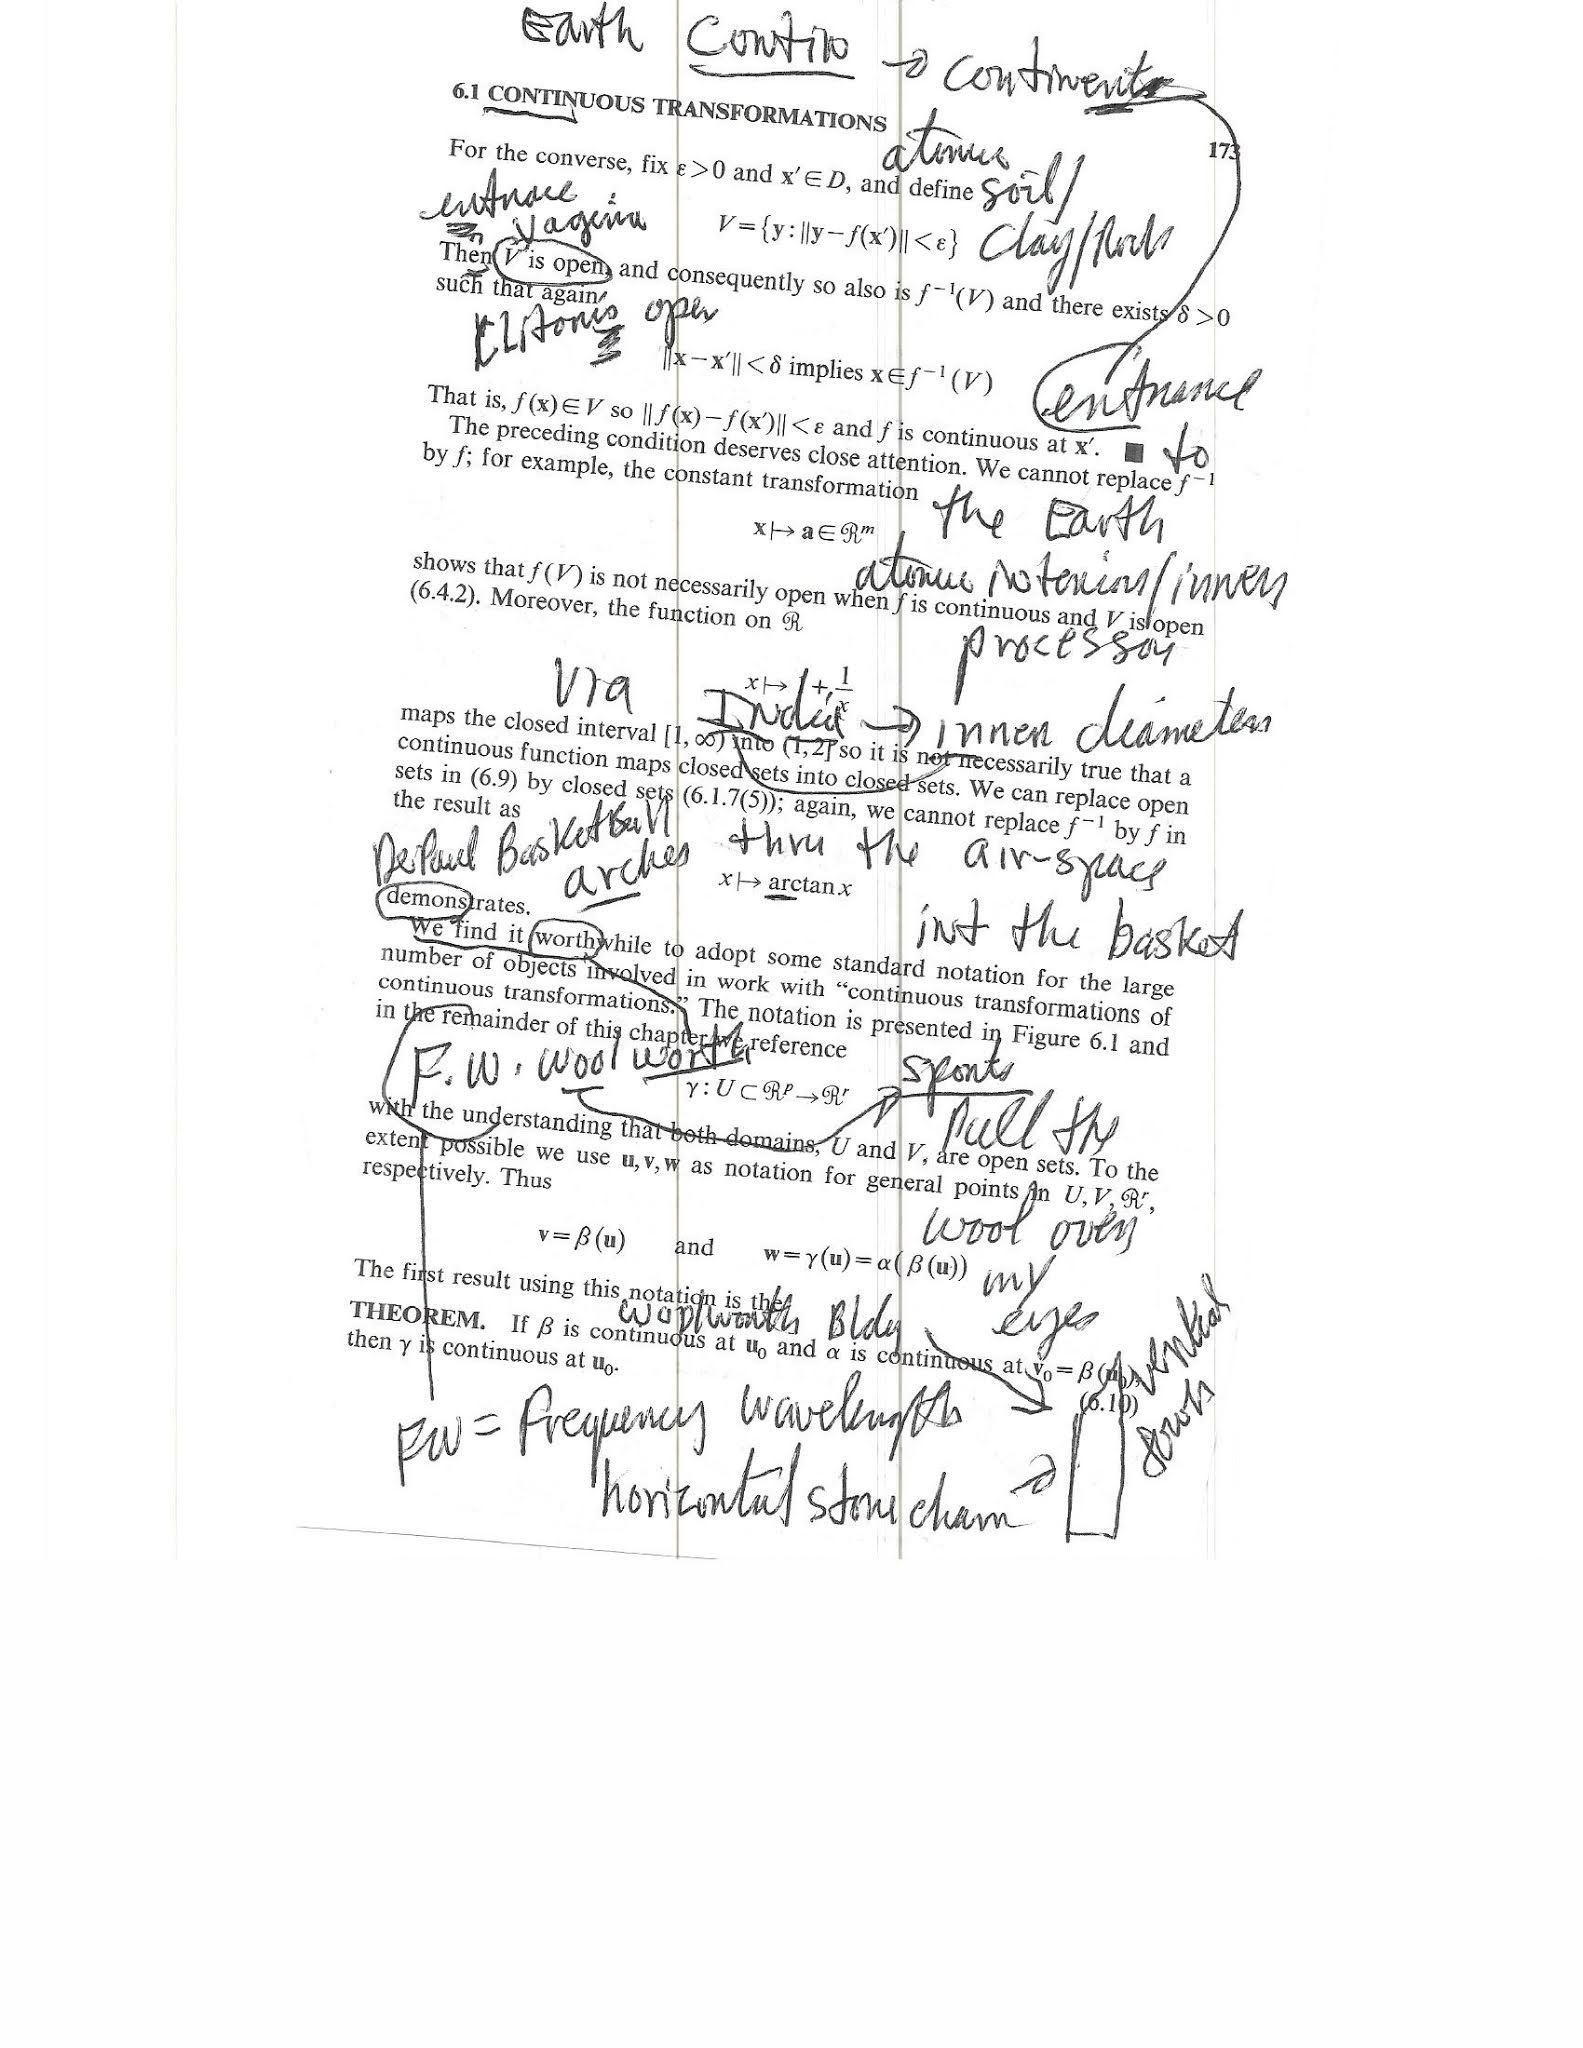 Earth Contin → continents
6.1 CONTINUOUS TRANSFORMATIONS
173
atomic
For the converse, fix ε>0 and x′∈D, and define soil/
entrace
vagina
V={y:||y−f(x′)||<ε} Clay/Rock
Then V is open, and consequently so also is f⁻¹(V) and there exists δ>0
such that again,
Clitoris open
||x−x′||<δ implies x∈f⁻¹(V)
entrance
That is, f(x)∈V so ||f(x)−f(x′)||<ε and f is continuous at x′. ■
to
The preceding condition deserves close attention. We cannot replace f⁻¹
by f; for example, the constant transformation
the Earth
x↦a∈ℛᵐ
atomic /inner
shows that f(V) is not necessarily open when f is continuous and V is open
(6.4.2). Moreover, the function on ℛ
processor
via
x↦1+1/x
India → inner diameter
maps the closed interval [1,∞) into (1,2] so it is not necessarily true that a
continuous function maps closed sets into closed sets. We can replace open
sets in (6.9) by closed sets (6.1.7(5)); again, we cannot replace f⁻¹ by f in
the result as
DePaul Basketball
arches thru the air-space
x↦arctan x
demonstrates.
int the basket
We find it worthwhile to adopt some standard notation for the large
number of objects involved in work with “continuous transformations of
continuous transformations.” The notation is presented in Figure 6.1 and
in the remainder of this chapter we reference
F.W. Woolworth
sports
γ:U⊂ℛᵖ→ℛʳ
Pull the
with the understanding that both domains, U and V, are open sets. To the
extent possible we use u,v,w as notation for general points in U,V,ℛʳ,
respectively. Thus
wool over
v=β(u) and w=γ(u)=α(β(u))
my
The first result using this notation is the
eyes
Woolworth Bldg
THEOREM. If β is continuous at u₀ and α is continuous at v₀=β(u₀),
then γ is continuous at u₀.
(6.10)
vertical
FW = Frequency wavelength
horizontal stone cham →